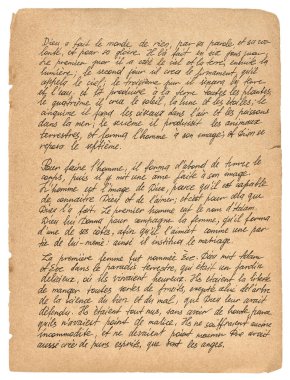 Dieu a fait le monde de rien, par sa parole et sa vo
lonté, et pour sa gloire. Il l'a fait en six jours
Le premier jour il a créé le ciel et la terre, ensuite la
lumière; le second jour il créa le firmament, qu'il
appela le ciel; le troisième jour il sépara la terre
de l'eau, et fit produire à la terre toutes les plantes;
le quatrième il créa le soleil, la lune et les étoiles; le
cinquième il forma les oiseaux dans l'air et les poissons
dans la mer; le sixième il produisit les animaux
terrestres, et forma l'homme à son image; et Dieu se
reposa le septième.
Pour faire l'homme, il forma d'abord de terre le
corps, puis il y mit une âme faite à son image
L'homme est l'image de Dieu, parce qu'il est capable
de connaître Dieu et de l'aimer; et c'est pour cela que
Dieu l'a fait. Le premier homme eut le nom d'Adam.
Dieu lui donna pour compagne la femme, qu'il forma
d'une de ses côtes, afin qu'il l'aimât comme une par
tie de lui-même; ainsi il institua le mariage.
La première femme fut nommée Eve. Dieu mit Adam
et Eve dans le paradis terrestre, qui était un jardin
délicieux, où ils vivaient heureux. Ils étaient la liberté
de manger toutes sortes de fruits, excepté celui de l'arbre
de la science du bien et du mal, que Dieu leur avait
défendu. Ils étaient tout nus, sans avoir de honte, parce
qu'ils n'avaient point de malice. Ils ne souffraient aucune
incommodité, et ne devaient point mourir. Dieu avait
aussi créé de purs esprits, que sont les anges.